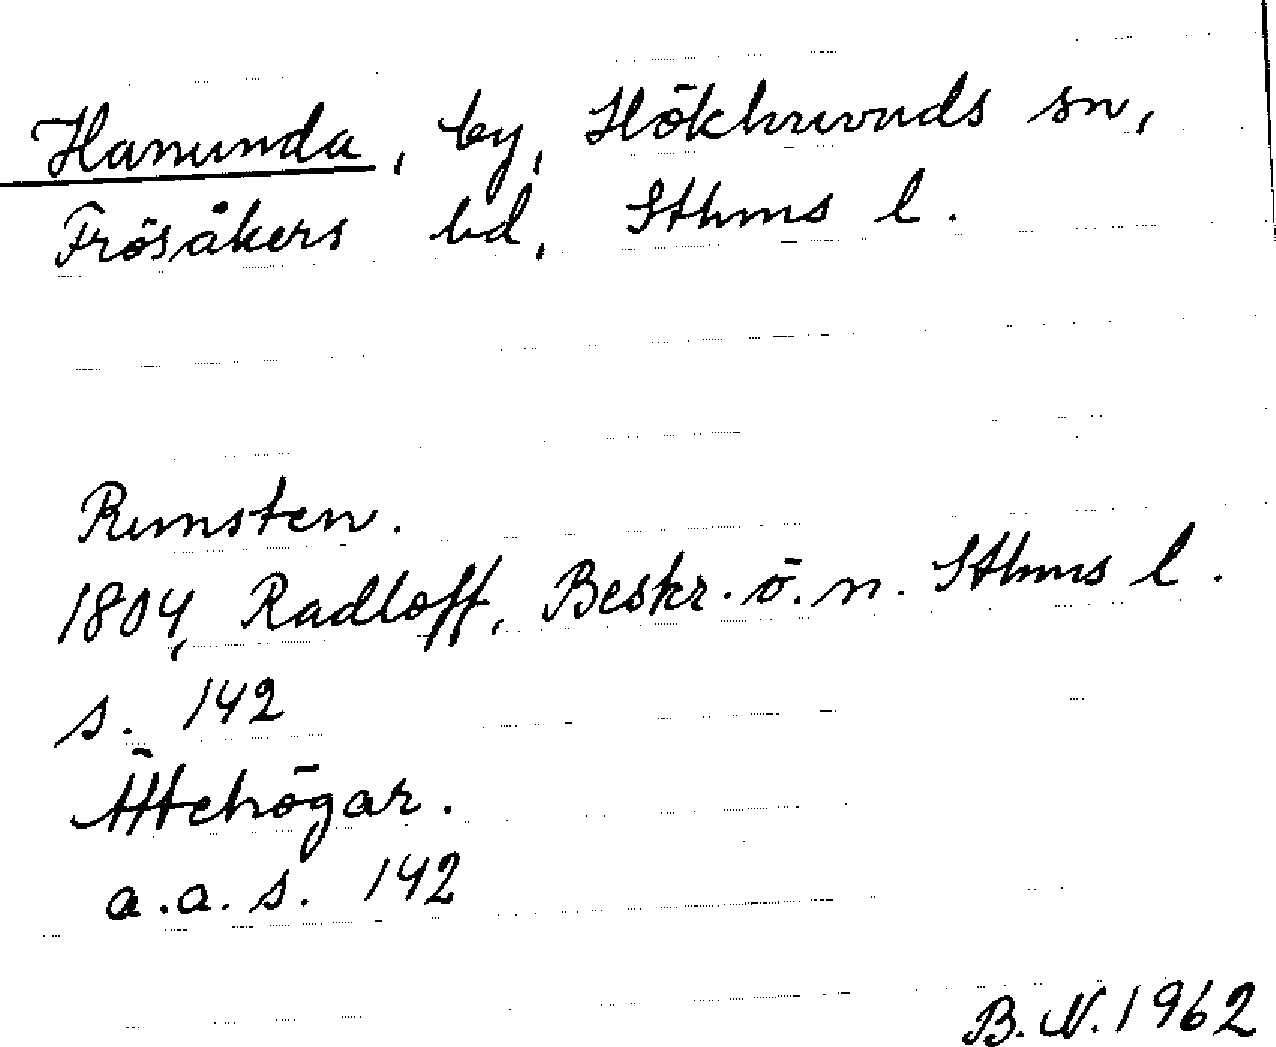 Hanunda, by, Hökhuvuds sn,
Frösåkers hd, Sthms l.
Runsten.
1804, Radloff, Beskr. ö. n. Sthms l.
s. 142
Ättehögar.
a.a. s. 142
B. N. 1962